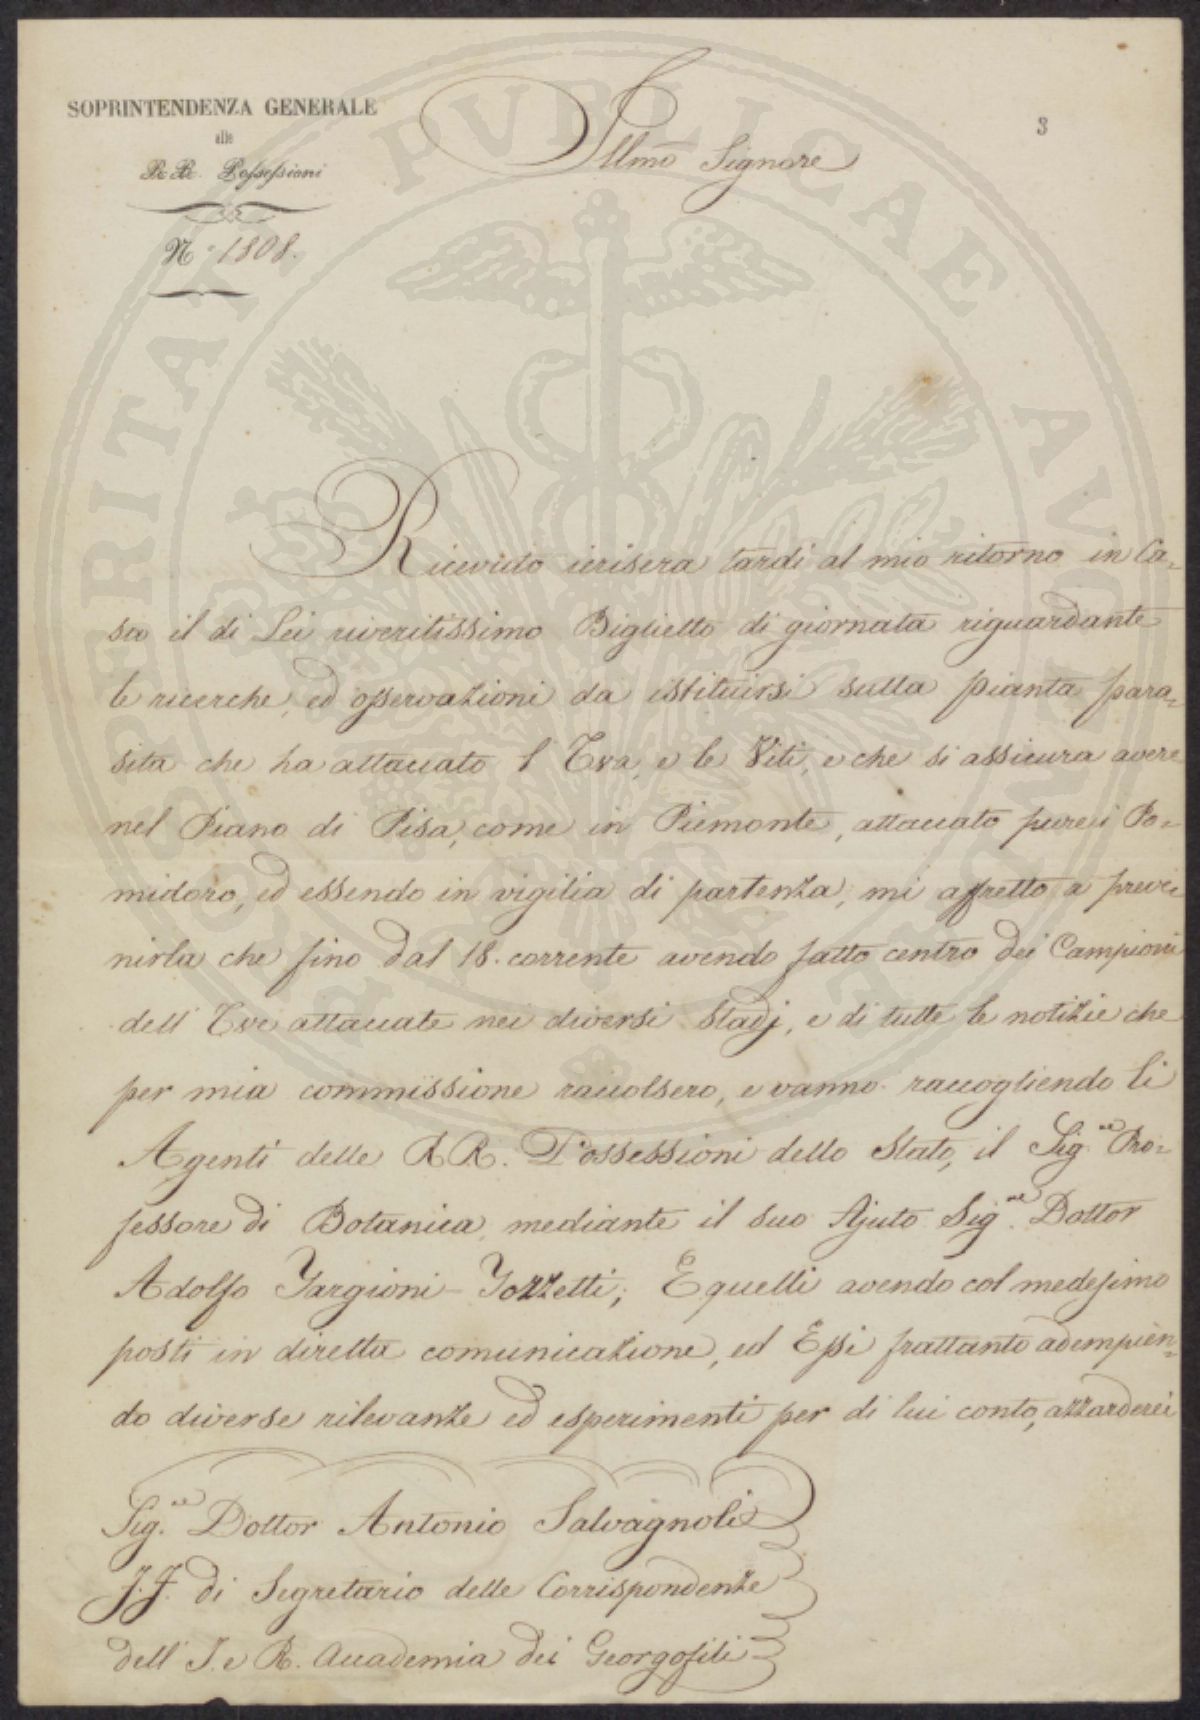 SOPRINTENDENZA GENERALE
alle
RR. Possessioni
N.° 1808.
3
Illmo Signore
Ricevuto ierisera tardi al mio ritorno in Ca-
sa il di Lei riveritissimo Biglietto di giornata riguardante
le ricerche, ed osservazioni da istituirsi sulla pianta para-
sita che ha attaccato l'Uva, e le Viti, e che si assicura avere
nel Piano di Pisa, come in Piemonte, attaccato pure i Po-
midoro, ed essendo in vigilia di partenza, mi affretto a preve-
nirla che fino dal 18. corrente avendo fatto centro dei Campioni
dell'Uve attaccate nei diversi Stadj, e di tutte le notizie che
per mia commissione raccolsero, e vanno raccogliendo li
Agenti delle RR. Possessioni dello Stato, il Sig.re Pro-
fessore di Botanica, mediante il suo Ajuto Sig.re Dottor
Adolfo Targioni-Tozzetti; E quelli avendo col medesimo
posti in diretta comunicazione, ed Essi frattanto adempien-
do diverse rilevanze ed esperimenti per di lui conto, azzarderei
Sig.re Dottor Antonio Salvagnoli
f.f. di Segretario delle Corrispondenze
dell'I. e R. Accademia dei Georgofili
PROSPERITATI PVBLICAE AVGENDAE